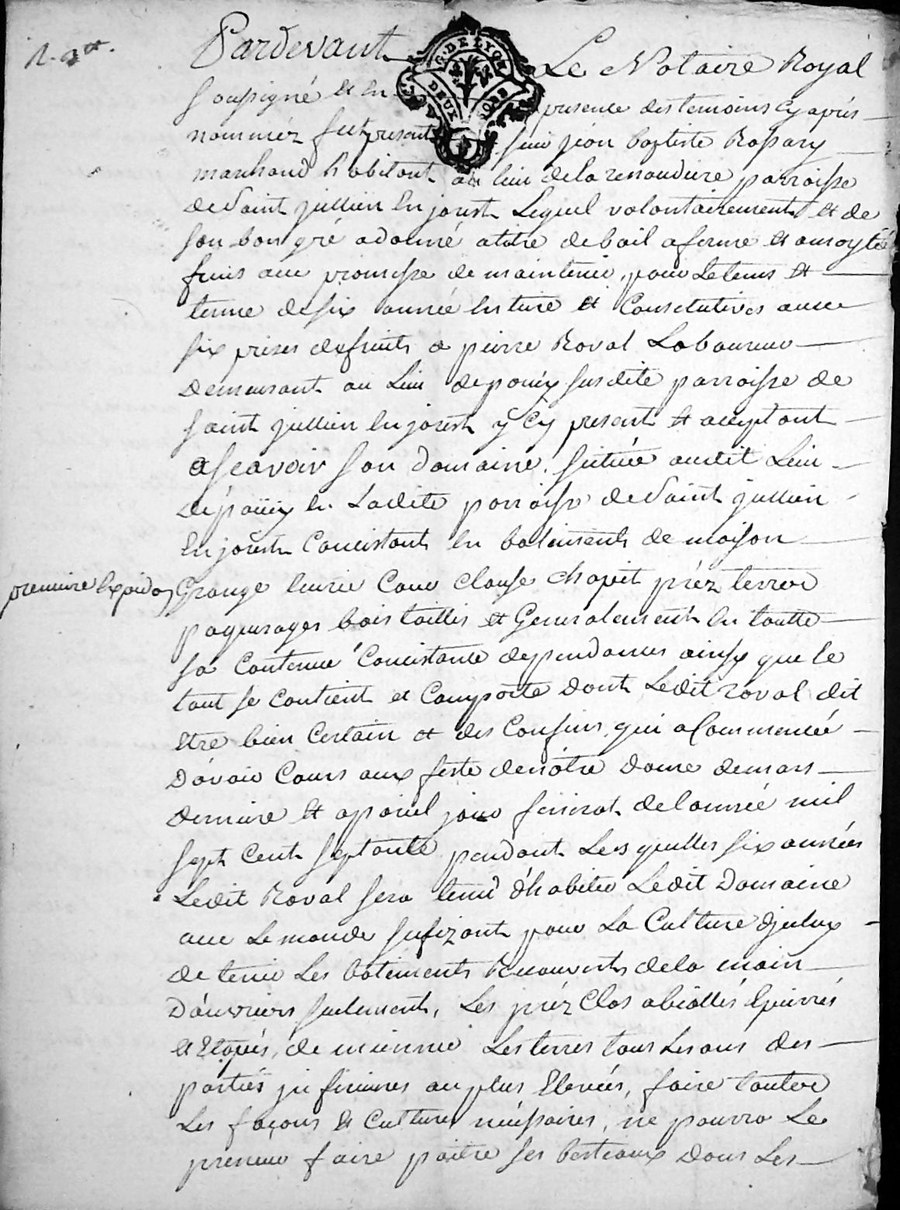 Pardevant Le Notaire Royal
G. DE LYON DEUX
soussigné et en presence des temoins cy aprés
nommez fut present sieur jean baptiste Ropary
marchand habitant au lieu de la renaudiere parroisse
de Saint jullien En jorest Lequel volontairement et de
son bon gré a donné a titre de bail a ferme et a moytié
fruis avec promesse de maintenir, pour Le tems et
terme de six année Entiere et Consecutives avec
six prises de fruits a pierre Roval Laboureur
demeurant au Lieu de poüey susdite parroisse de
saint jullien En jorest y Cy present et acceptant
ascavoir son domaine situéé audit Lieu
de poüey En Ladite parroisse de Saint jullien
En jorest Concistant En batiments de maison
premiere Expédon
Grange Cour Clause chapit préz terres
paquerages bois taillis et Generalement En toutte
sa Contenue Concistance dependances ainsy que le
tout se Contient et Comporte dont Ledit roval dit
Etre bien Certain et des Confins, qui a Commencée
D'avoir Cours aux feste de nôtre dame de mars
derniere et a pareil jour finirat de l'année mil
sept Cent septante pendant Lesquelles six années
Ledit Roval sera tenu d'habiter Ledit Domaine
avec Le monde sufizant pour La Culture d'jceluy
de tenir Les bâtiments Recouverts de la main
D'ouvriers seulement, Les préz Clos
et de Les terres tous Les ans des
parties jnferieures au plus Elevées, faire touttes
Les façons et Cultures nécessaires, ne pourra Le
preneur faire paitre ses bestiaux dans Les